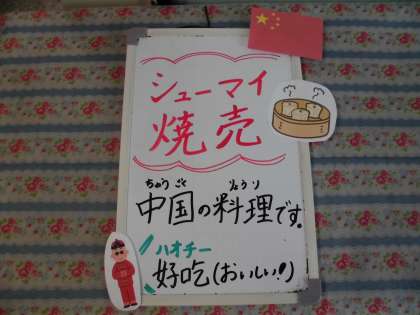 シューマイ
焼売
ちゅうごく りょうり
中国の料理です。
ハオチー
好吃(おいしい!)